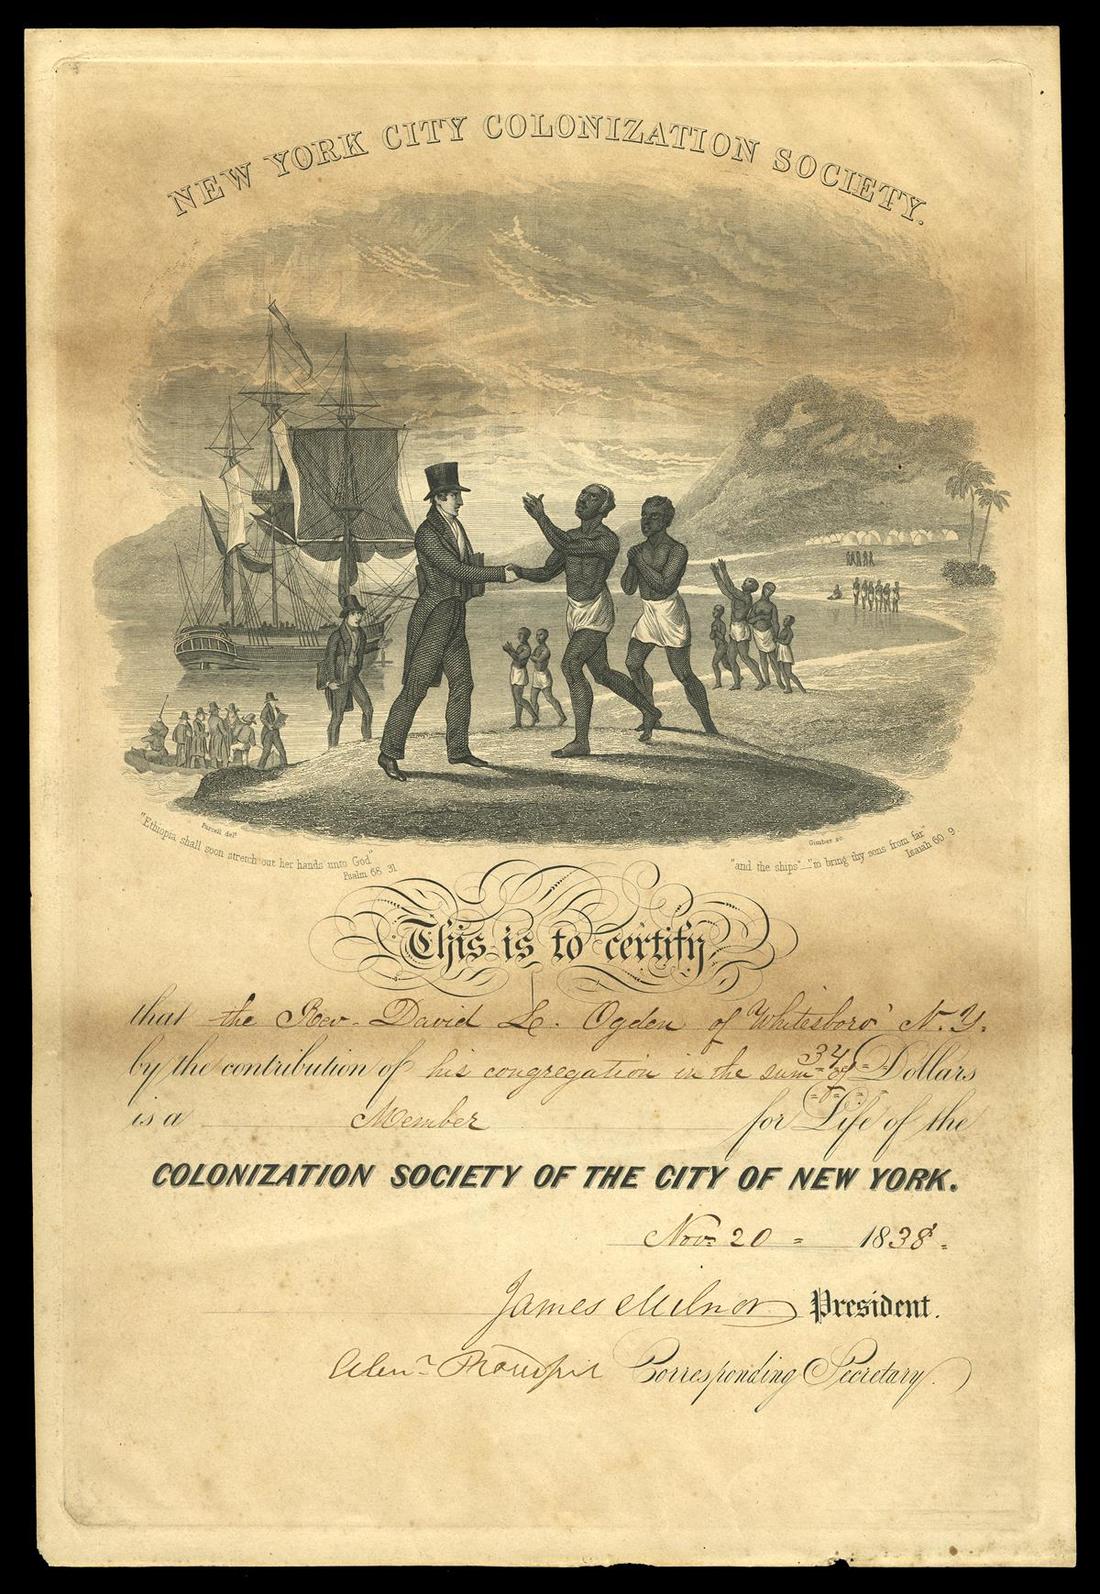 NEW YORK CITY COLONIZATION SOCIETY.
Purcell delt.
Gimber sc.
"Ethiopia shall soon stretch out her hands unto God"
Psalm 68 31
"and the ships"—"to bring thy sons from far"
Isaiah 60 9
This is to certify
that the Rev. David L. Ogden of Whitesboro' N.Y.
by the contribution of his congregation in the sum of 34 Dollars
is a Member for Life of the
COLONIZATION SOCIETY OF THE CITY OF NEW YORK.
Nov. 20 = 1838.
James Milnor President.
Alexr. Proudfit Corresponding Secretary.